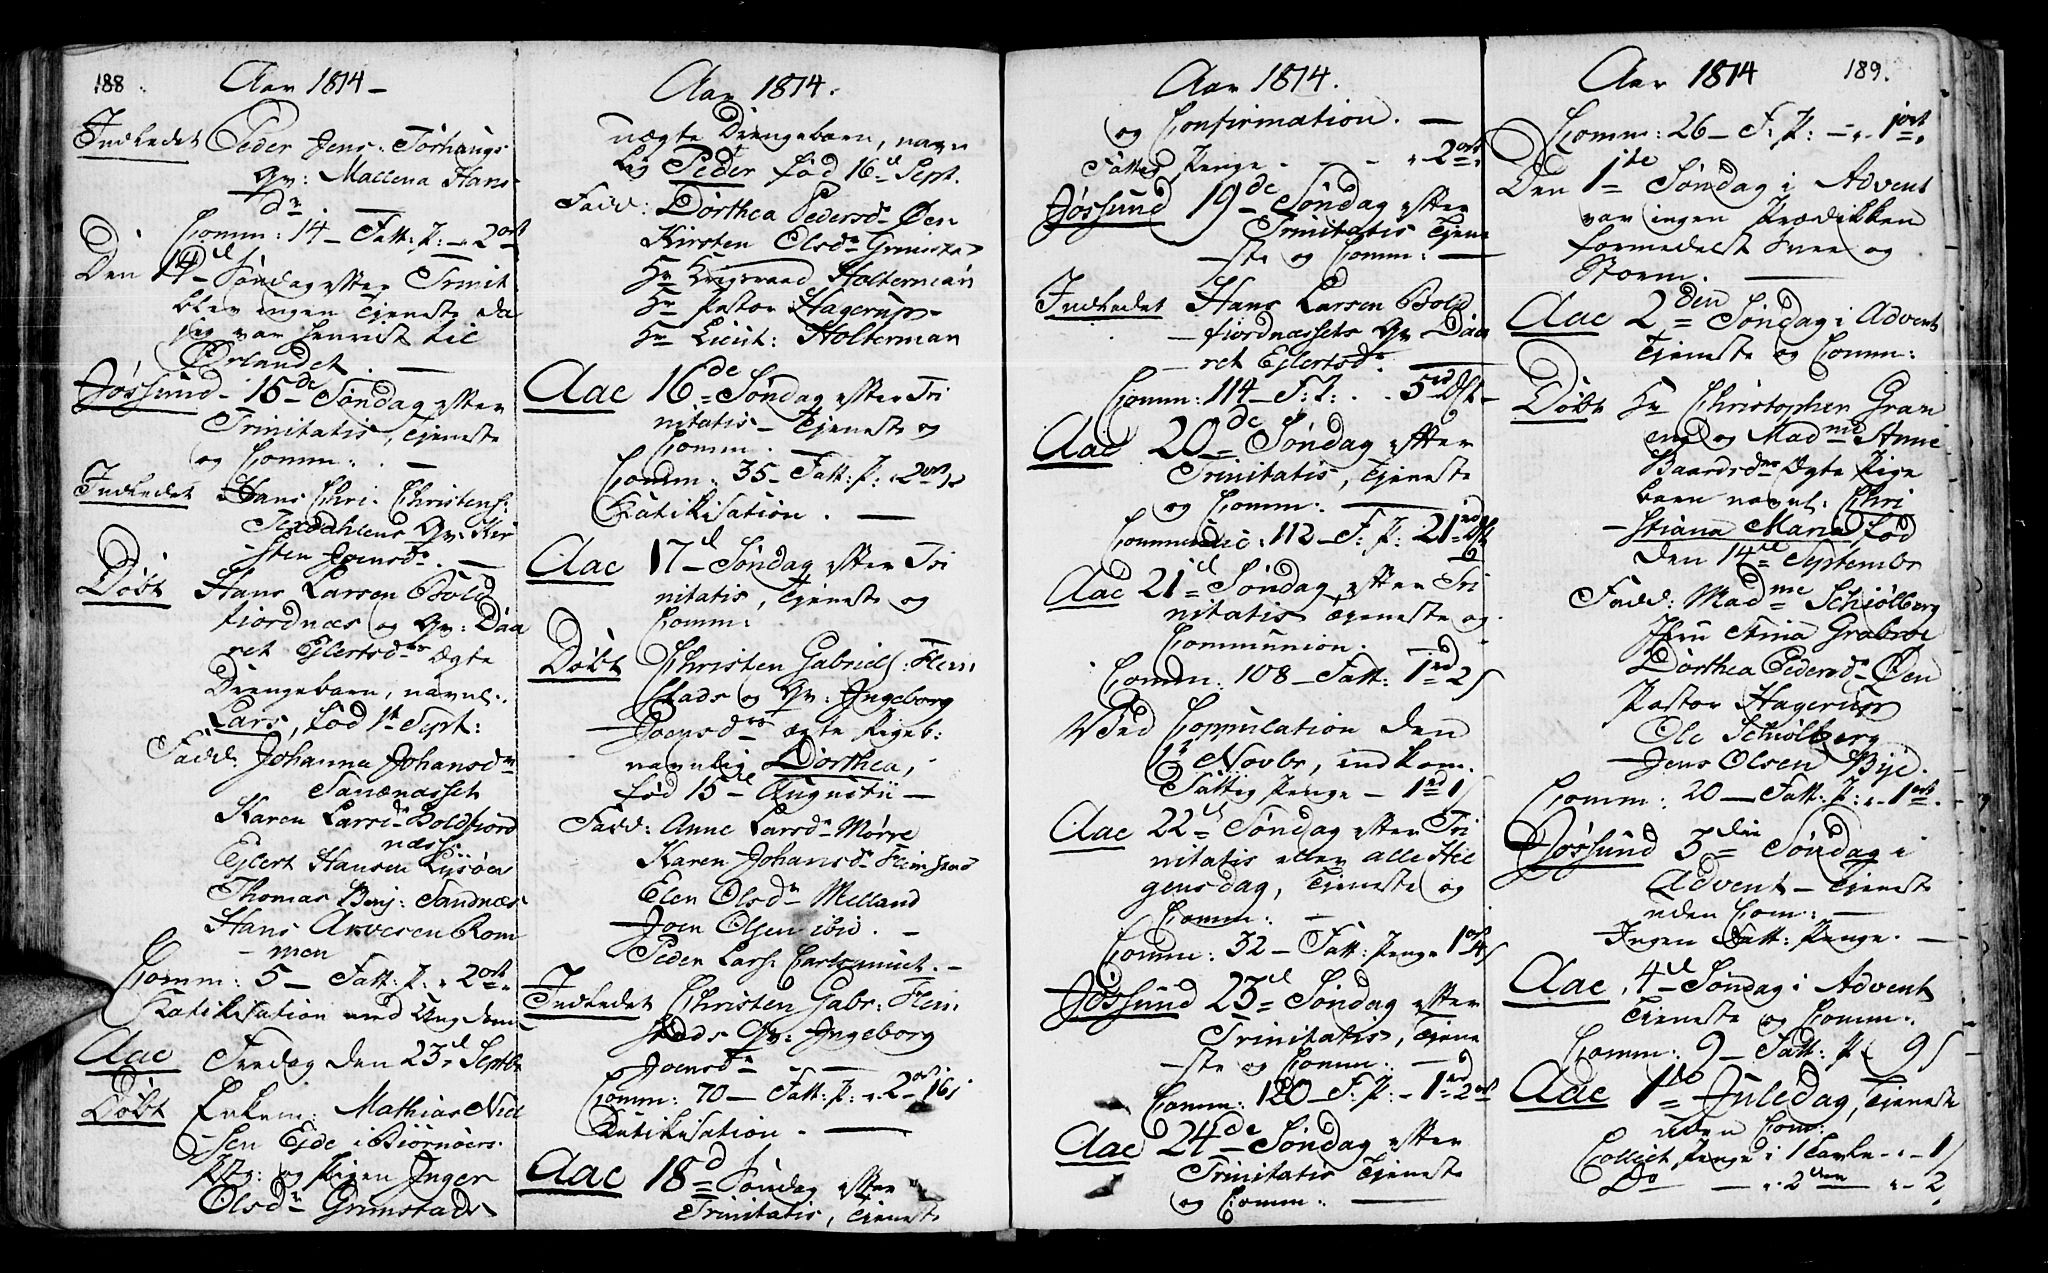 188.
Aar 1814 –
Indledet Peder Jens: Torhaugs
Qv: Mallena Hans
dr. —
Comm: 14 – Fatt: P: – 2 ort
Den 14de Søndag efter Trinit
blev ingen Tieneste da
jeg var henreist til
Ørlandet. —
Jøssund – 15de Søndag efter
Trinitatis, Tieneste
og Comm: . —
Indledet Hans Chri. Christens:
Terdahlens Qv: Kir
sten Joensdr. —
Døbt Hans Larsen Bold
fiordnæs og Qv: Daa
ret Ejlertsdrs Ægte
Drengebarn, navnl:
Lars, fød 1te Sept:
Fadd. Johanna Johansdr
Sanænæsset
Karen Larsdr Boldfiord
næss:
Ejlert Hansen Lysøen
Thomas Benj: Sandnæs
Hans Arvesen Rom
men
Comm: 5 – Fatt: P: . 2 ort.
Katikisation med Ungdom
Aae Fredag den 23de Septbr
Døbt Enkem: Mathias Niel
sen Eide i Biørnøers
Ptg: og Pigen Inger
Olsdr Grimstads
Aar 1814.
uægte Drengebarn, navn
lig Peder fød 16de Sept.
Fadd: Dorthea Pedersdr Øen
Kirsten Olsdr Grimstad
Hr Krigsraad Holterman
Hr Pastor Hagerup
Hr Lieut: Holterman
Aae 16de Søndag efter Tri
nitatis – Tieneste og
Comm. —
Comm: 35 – Fatt: P: . 2 ort
Katikisation. —
Aae 17de Søndag efter Tri
nitatis, Tieneste og
Comm:
Døbt Christen Gabriels: Flem
stads og Qv: Ingeborg
Joensdrs ægte Pigeb:
navnlig Dorthea,
fød 15de Augustii —
Fadd: Anne Larsdr Mørre
Karen Johansdr Flemstad
Elen Olsdr Melland
Joen Olsen ibid. –
Peder Lars: Carlsmuet. –
Indledet Christen Gabr: Flem
stads Qv: Ingeborg
Joensdr —
Comm: 70 – Fatt: P: . 2 ort 16 s
Katikisation. —
Aae 18de Søndag efter
Trinitatis, Tieneste
Aar 1814.
og Confirmation. —
Fattig Penge . - - . 2 ort.
Jøssund 19de Søndag efter
Trinitatis Tiene
ste og Comm: —
Indledet Hans Larsen Bold
fiordnæssets Qv Daa
ret Ejlertsdr. —
Comm: 114 – F: P: . . 5
Aae 20de Søndag efter
Trinitatis, Tieneste
og Comm: —
Communic: 112 – F: P: 21
Aae 21de Søndag efter Tri
nitatis Tieneste og
Communion.
Comm: 108 – Fatt: 1 rd 2 s
Ved Copulation den
Novbr, indkom
Fattig Penge – 1 rd 1 s
Aae 22de Søndag efter Tri
nitatis eller alle Hel
gensdag, Tieneste og
Comm: –
Comm: 32 – Fatt: Penge 1 ort 4 s
Jøssund 23de Søndag efter
Trinitatis, Tiene
ste og Comm: —
Comm: 120 – F: P: – 1 rd 2 ort
Aae 24de Søndag efter
Trinitatis Tieneste
og Comm: —
Aar 1814
189.
Comm: 26 – F: P: – . 1 ort.
Den 1ste Søndag i Advent
var ingen Prædikken
formedelst Snee og
Storm. —
Aae 2den Søndag i Advent
Tieneste og Comm:
Døbt Hr Christopher Gram
og Madme Anne
Baardsdrs Ægte Pige
barn navnl: Chri
stiana Maria fød
den 14de Septembr
Fadd: Madme Schiølberg
Jfru Stina Grabroe
Dorthea Pedersdr Øen
Pastor Hagerup
Ole Schiølberg
Jens Olsen Bye.
Comm: 20 — Fatt: P: . – 1 ort.
Jøssund 3die Søndag i
Advent – Tieneste
uden Com: —
Ingen Fatt: Penge. —
Aae 4de Søndag i Advent
Tieneste og Comm:
Comm: 9 – Fatt: P 9 s
Aae 1ste Juledag, Tieneste
uden Com:
Collect Penge i 1 Tavle . – 1 s
Do — . 2den . – 2